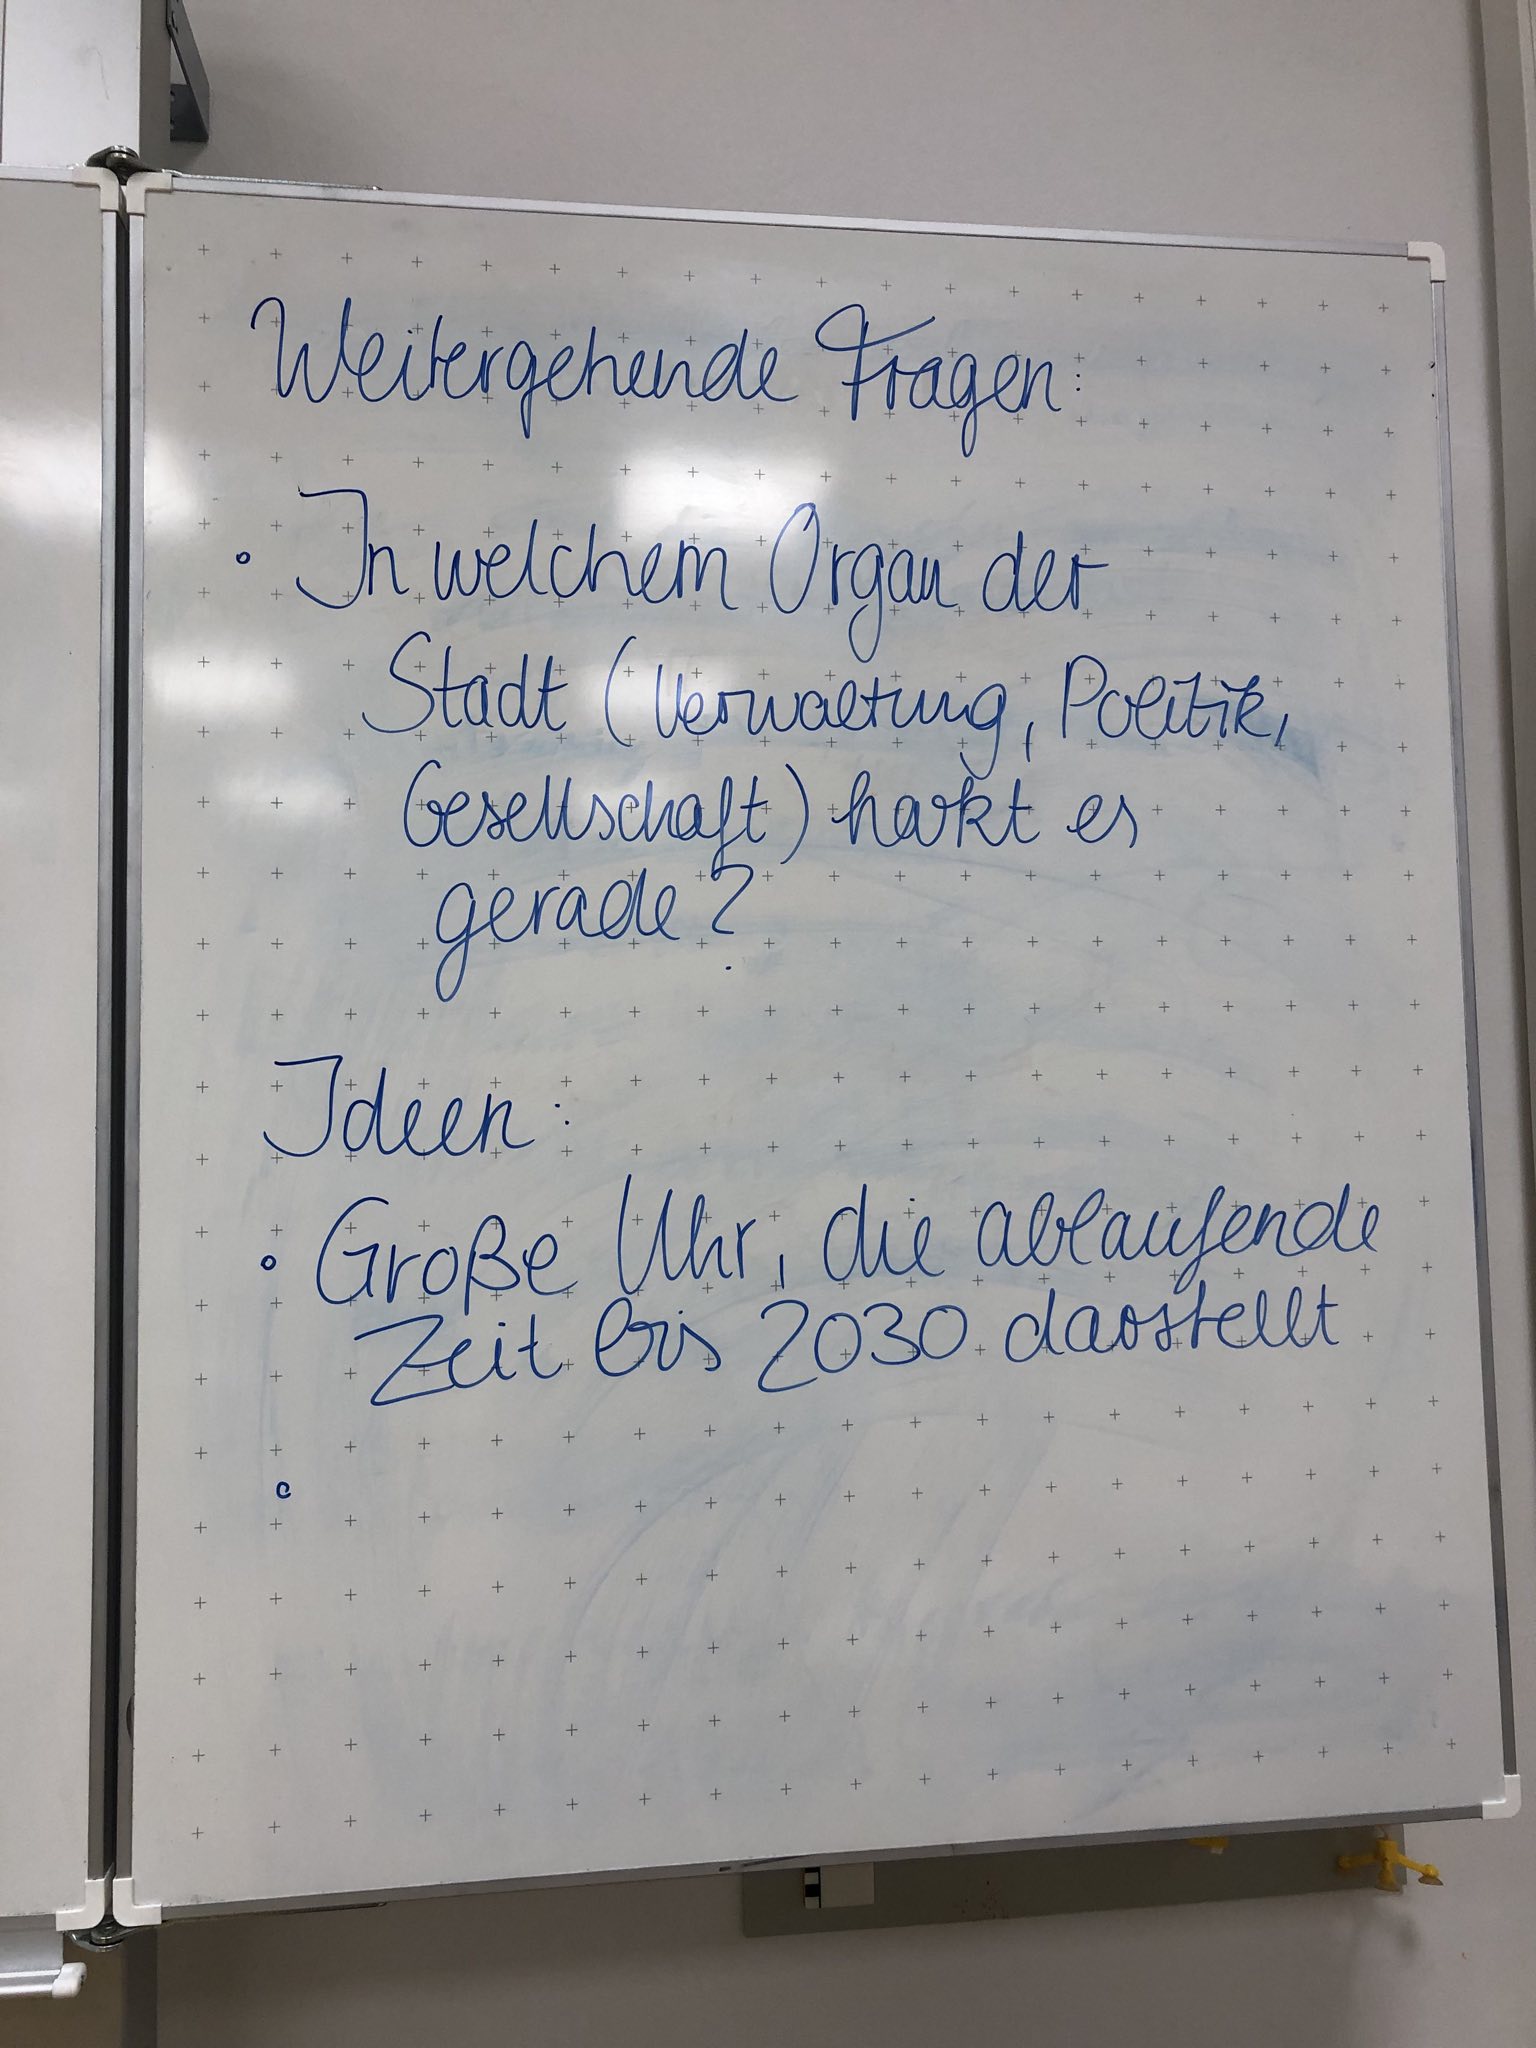 Weitergehende Fragen:
• In welchem Organ der
Stadt (Verwaltung, Politik,
Gesellschaft) harkt es
gerade?
Ideen:
• Große Uhr, die ablaufende
Zeit bis 2030 darstellt
•